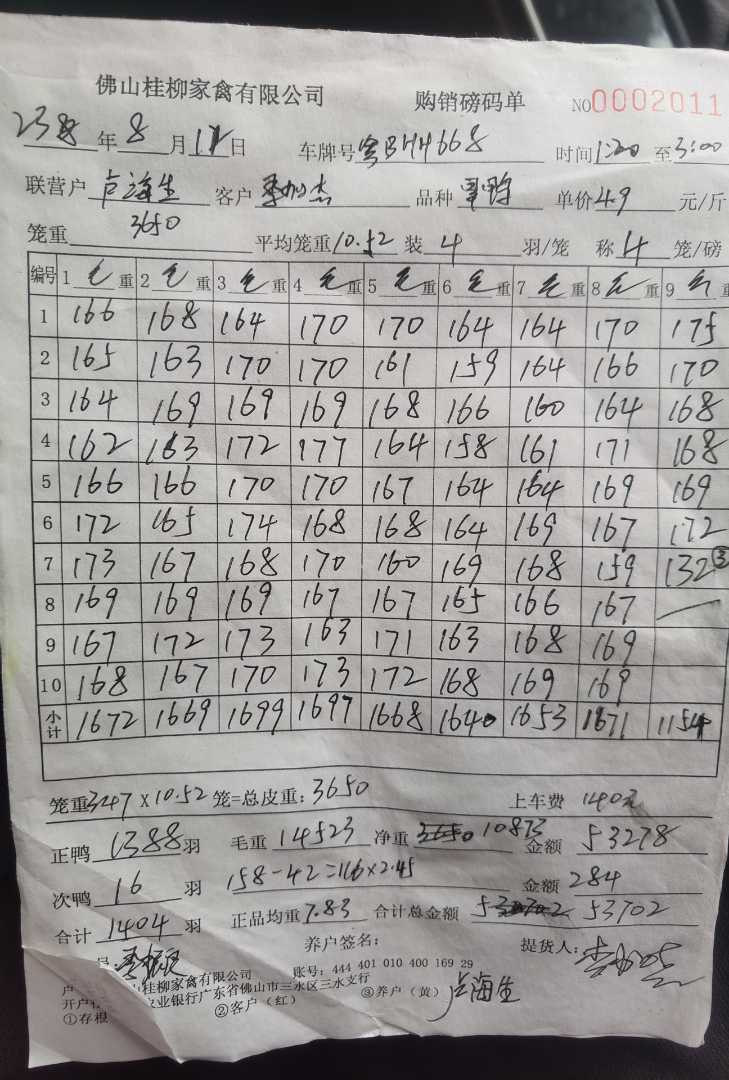 佛山桂柳家禽有限公司 购销磅码单 NO0002011
年 8 月 11 日 车牌号 粤BHH668 时间 1:20 至 3:00
联营户 卢海生 客户 品种 单价 4.9 元/斤
笼重 3650 平均笼重 10.52 装 4 羽/笼 称 4 笼/磅
编号 1 毛 重 2 毛 重 3 毛 重 4 毛 重 5 毛 重 6 毛 重 7 毛 重 8 毛 重 9 毛 重
1 166 168 164 170 170 164 164 170 175
2 165 163 170 170 161 159 164 166 170
3 164 169 169 169 168 166 160 164 168
4 162 163 172 177 164 158 161 171 168
5 166 166 170 170 167 164 164 169 169
6 172 165 174 168 168 164 169 167 172
7 173 167 168 170 160 169 168 159 132 ③
8 169 169 169 167 167 165 166 167 —
9 167 172 173 163 171 163 168 169
10 168 167 170 173 172 168 169 169
小计 1672 1669 1699 1697 1668 1640 1653 1671 1154
笼重 347 X 10.52 笼=总皮重: 3650 上车费 140元
正鸭 1388 羽 毛重 14523 净重 3650 10873 金额 53278
次鸭 16 羽 158-42=116×2.45 金额 284
合计 1404 羽 正品均重 7.83 合计总金额 53702
养户签名: 提货人:
山桂柳家禽有限公司 账号: 444 401 010 400 169 29
开户 业银行广东省佛山市三水区三水支行
①存根 ②客户（红） ③养户（黄） 卢海生